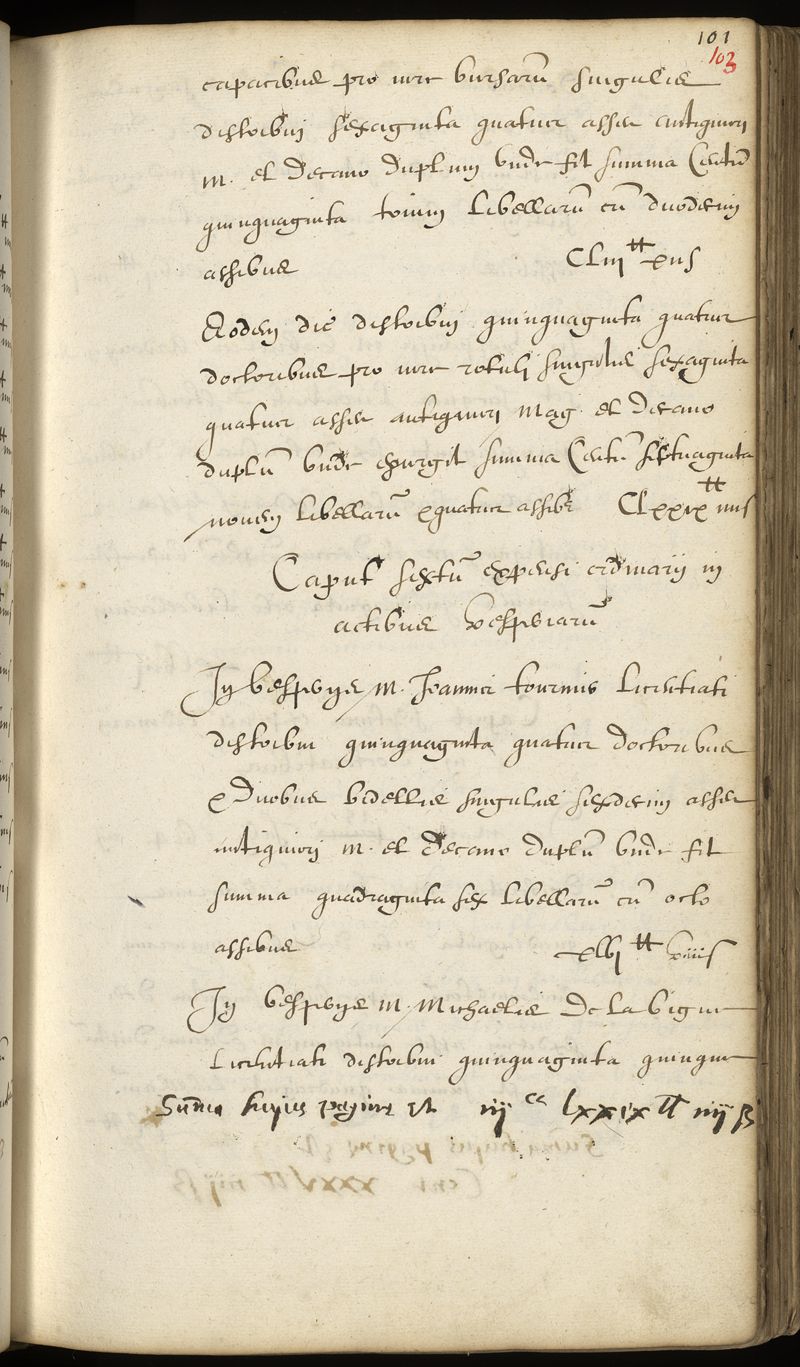 101
103
capacibus pro iure bursarū singulis
distribui sexaginta quatuor asses antiquiori
m. et Decano duplum unde fit summa Centū
quinquaginta trium libellarū cū duodecim
assibus CLiii ₶ xii s
Eodem die distribui quinquaginta quatuor
doctoribus pro iure rotuli singulis sexaginta
quatuor asses antiquiori Mag. et Decano
duplū unde exurgit summa Centū septuaginta
novem libellarū & quatuor assibs CLxxix ₶ iiii s
Caput sextū expensi ordinarij in
actibus vesperiarū
In vesperijs m. Joannis tournis licentiati
distribui quinquaginta quatuor doctoribus
& duobus bidellis singulis sexdecim asses
antiquiori m. et Decano duplū unde fit
summa quadraginta sex libellarū cū octo
assibus xlvi ₶ viii s
In vesperijs m. Michaelis De la Vigne
licentiati distribui quinquaginta quinque
Summa hujus pagine est iij cc lxxix ₶ iiij ß